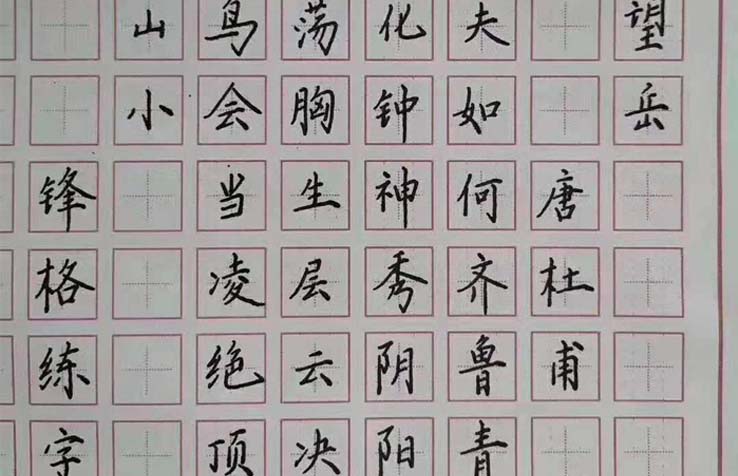 望岳
唐杜甫
夫如何齐鲁青
化钟神秀阴阳
荡胸生层云决
鸟会当凌绝顶
山小
锋格练字